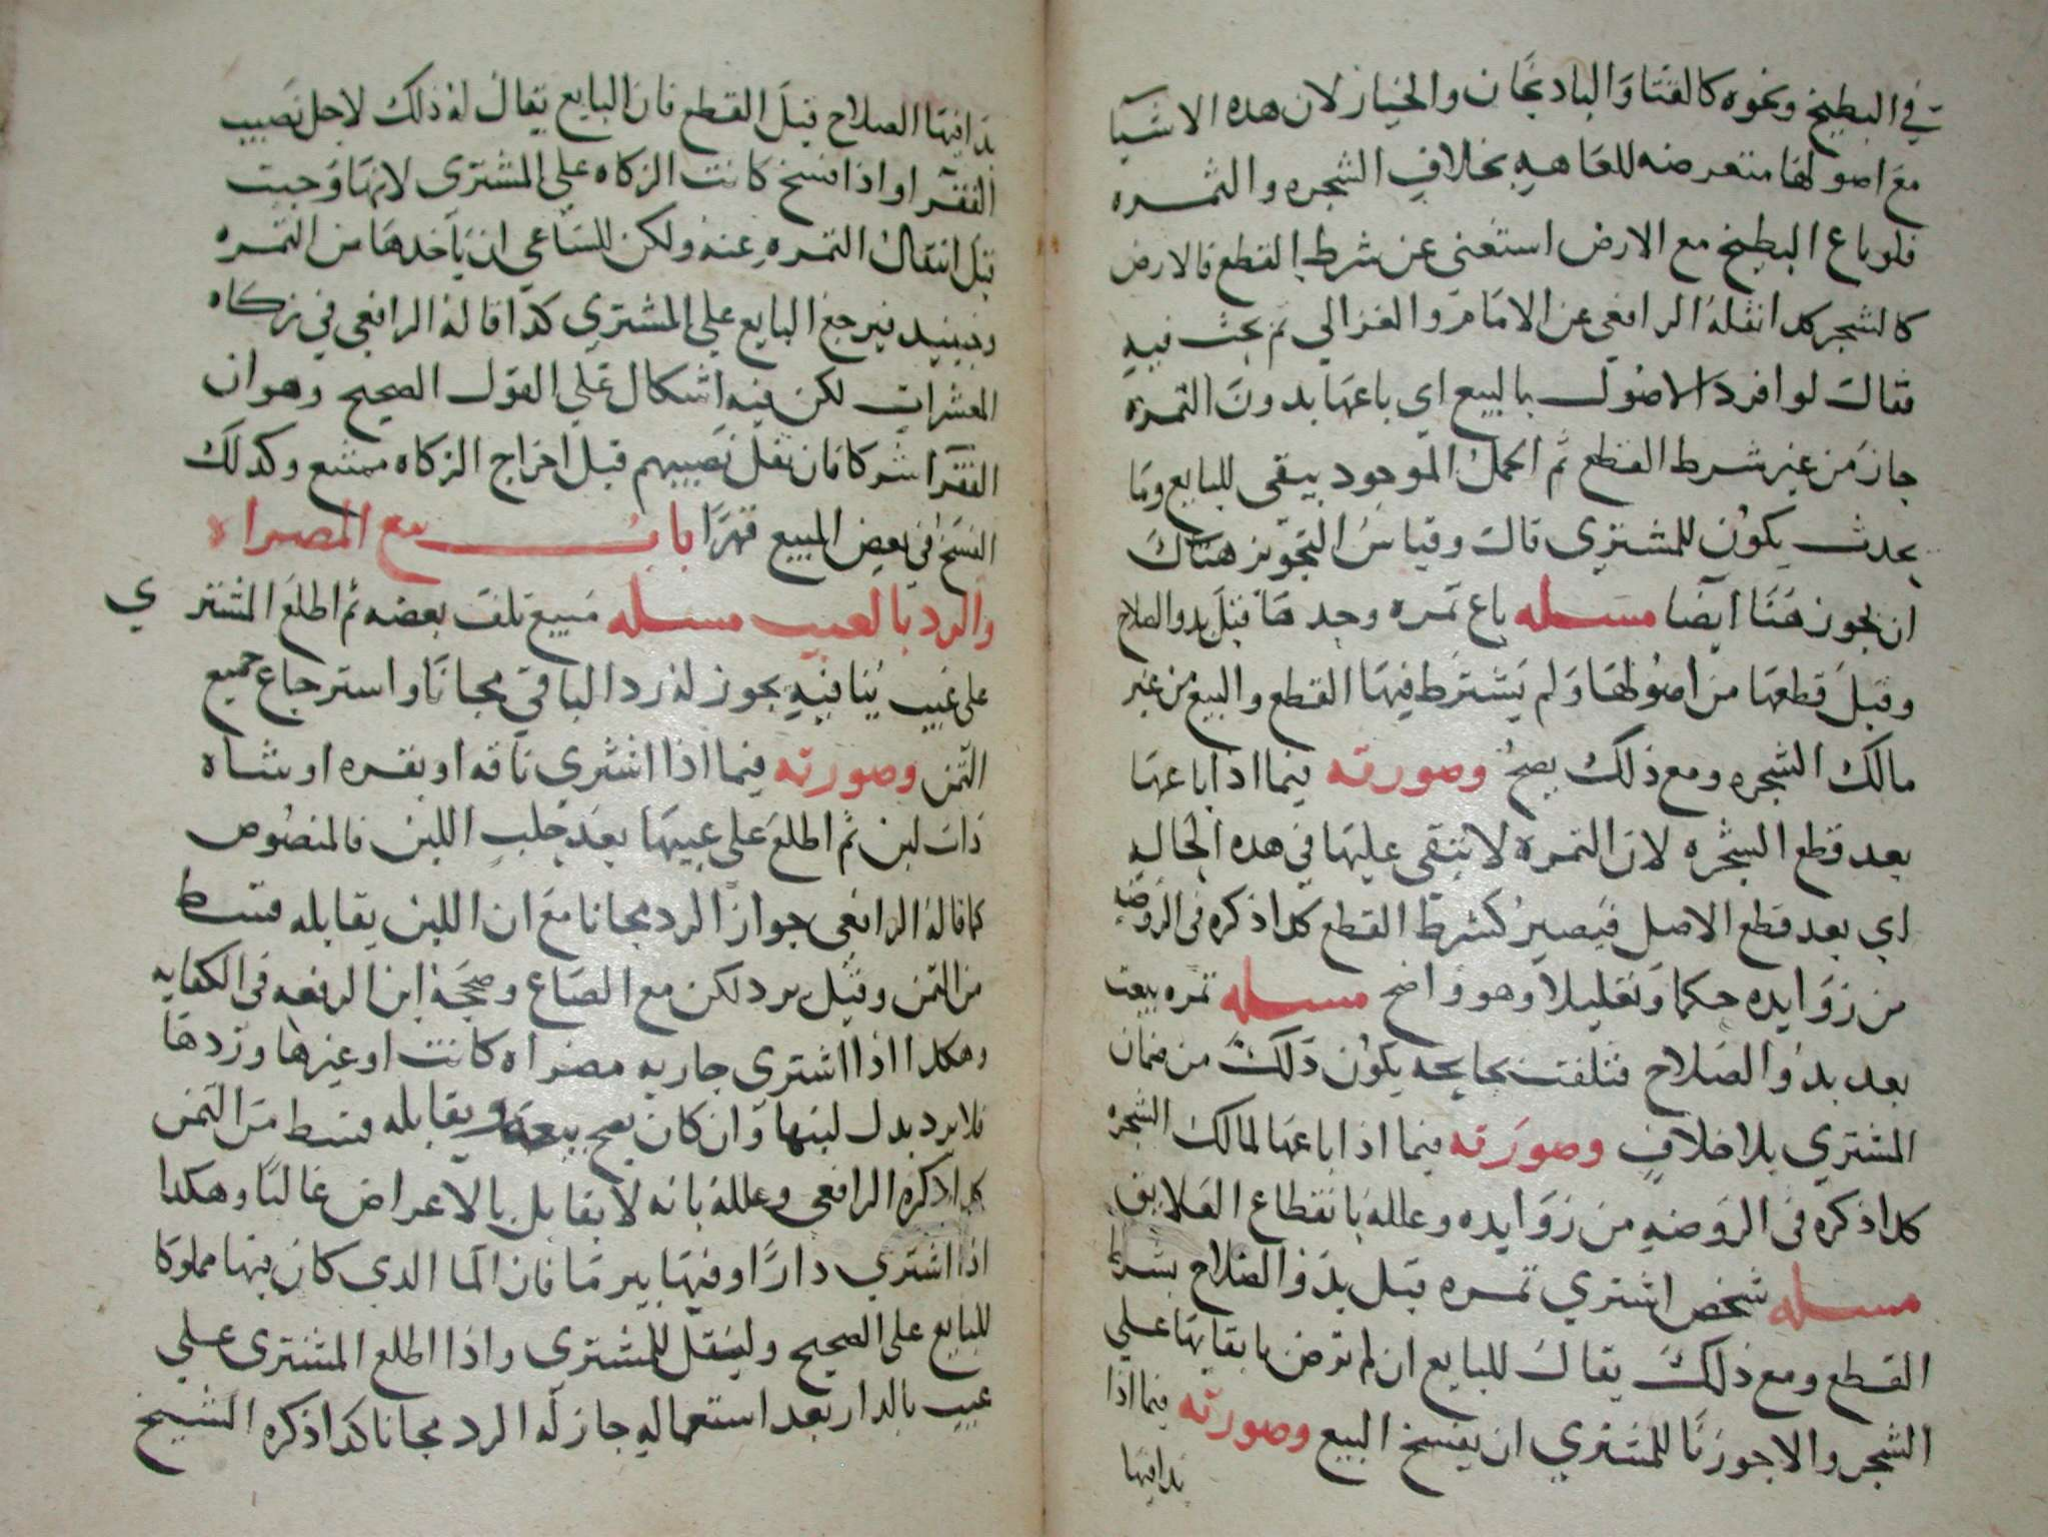 في البطيخ ونحوه كالقثا والبادنجان والخيار لان هده الاشيا
مع اصولها متعرضه للعاهه بخلاف الشجره والثمره
فلو باع البطيخ مع الارض استغنى عن شرط القطع فالارض
كالشجر كدا نقله الرافعي عن الامام والغزالي ثم بحث فيه
فقال لو افرد الاصول بالبيع اي باعها بدون الثمرة
جاز من غير شرط القطع ثم الحمل الموجود يبقى للبايع وما
يحدث يكون للمشتري قال وقياس التجويز هناك
ان يجوز هنا ايضا مسله باع ثمره وحدها قبل بدو الصلاح
وقبل قطعها من اصولها ولم يشترط فيها القطع والبيع من غير
مالك الشجره ومع ذلك يصح وصورته فيما اذا باعها
بعد قطع الشجره لان الثمرة لا تبقى عليها في هده الحاليه
اي بعد قطع الاصل فيصير كشرط القطع كدا ذكره في الروضه
من زوايده حكما وتعليلا وهو واضح مسله ثمره بيعت
بعد بدو الصلاح فتلفت بجايحه يكون دلك من ضمان
المشتري بلا خلاف وصورته فيما اذا باعها لمالك الشجره
كدا ذكره في الروضه من زوايده وعلله بانقطاع العلايق
مسله شخص اشتري ثمره قبل بدو الصلاح بشرط
القطع ومع ذلك يقال للبايع ان لم ترض بابقايها علي
الشجر والا جوزنا للمشتري ان يفسخ البيع وصورته فيما اذا
بدا فيها
بدا فيها الصلاح قبل القطع فان البايع يقال له ذلك لاجل نصيب
الفقرا واذا فسخ كانت الزكاه علي المشتري لانها وجبت
قبل انتقال الثمره عنه ولكن للساعي ان ياخدها من الثمره
وحينيد فيرجع البايع علي المشتري كدا قاله الرافعي في زكاه
المعشرات لكن فيه اشكال علي القول الصحيح وهو ان
الفقرا شركا فان نقل نصيبهم قبل اخراج الزكاه ممتنع وكدلك
الفسخ في بعض المبيع قهرا باب بيع المصراه
والرد بالعيب مسله مبيع تلف بعضه ثم اطلع المشتري
على عيب ينافيه يجوز له رد الباقي مجانا واسترجاع جميع
الثمن وصورته فيما اذا اشتري ناقه او بقره او شاه
دات لبن ثم اطلع علي عيبها بعد حلب اللبن فالمنصوص
كما قاله الرافعي جواز الرد مجانا مع ان اللبن يقابله قسط
من الثمن وقيل يرد لكن مع الصاع وصححه ابن الرفعه في الكفايه
وهكدا اذا اشتري جاريه مصراه كانت او غيرها وردها
فلا يرد بدل لبنها وان كان يصح بيعه ويقابله قسط من الثمن
كدا ذكره الرافعي وعلله بانه لا يقابل بالاعراض غالبا وهكدا
اذا اشتري دارا وفيها بير ما فان الما الدي كان فيها مملوكا
للبايع علي الصحيح ولينقل للمشتري واذا اطلع المشتري علي
عيب بالدار بعد استعماله جاز له الرد مجانا كدا ذكره الشيخ